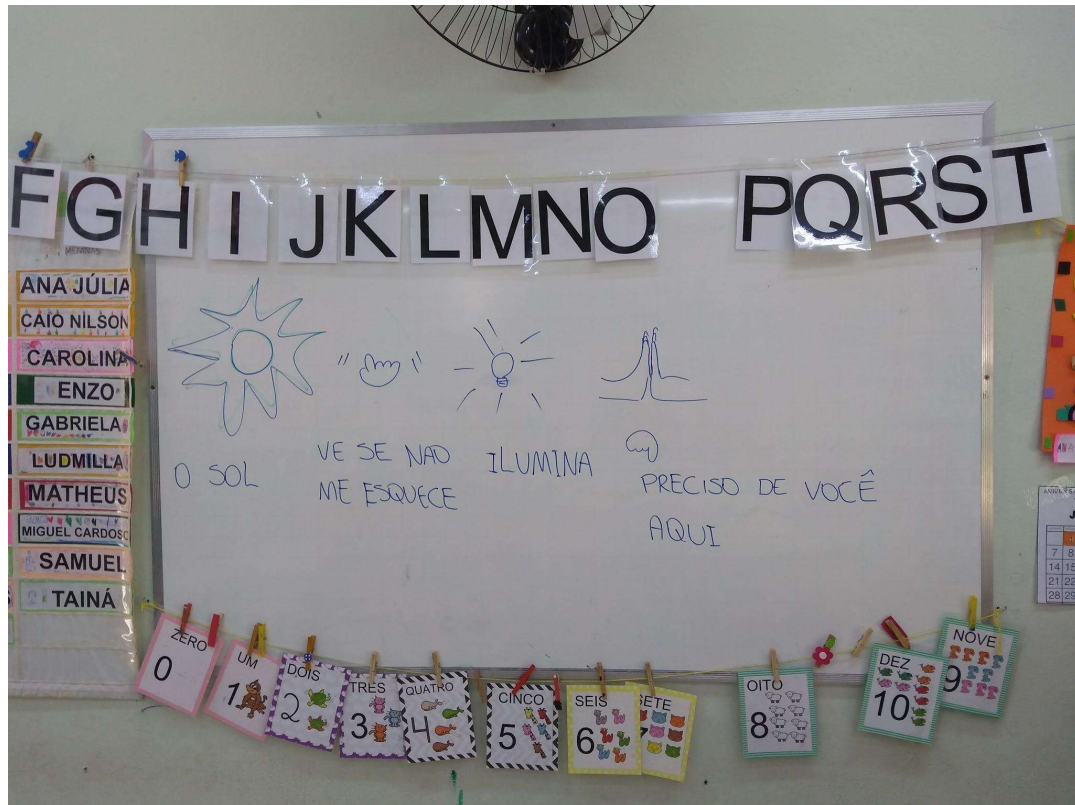 F G H I J K L M N O P Q R S T
MENINAS
ANA JÚLIA
CAIO NILSON
CAROLINA
ENZO
GABRIELA
LUDMILLA
MATHEUS
MIGUEL CARDOSO
SAMUEL
TAINÁ
O SOL
VE SE NAO
ME ESQUECE
ILUMINA
PRECISO DE VOCÊ
AQUI
ZERO
0
UM
1
DOIS
2
TRÊS
3
QUATRO
4
CINCO
5
SEIS
6
SETE
7
OITO
8
DEZ
10
NOVE
9
J
7 8
14 15
21 22
28 29